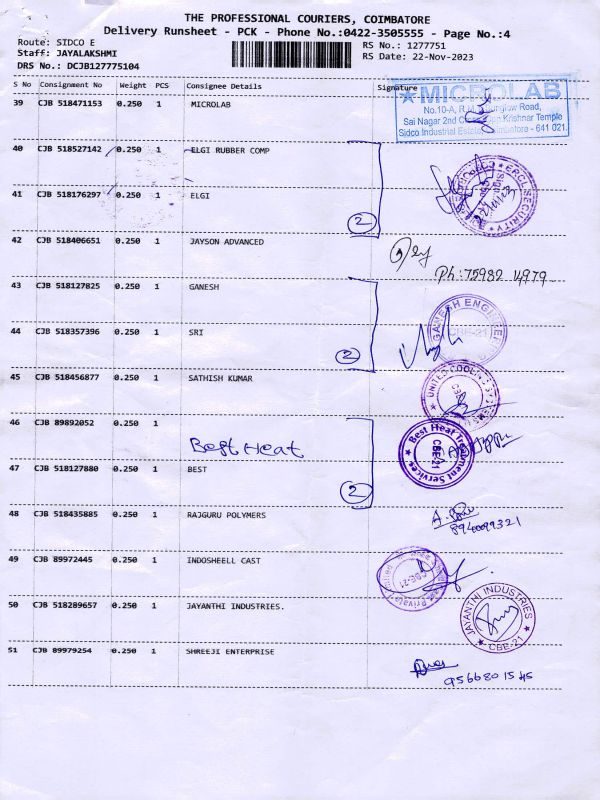 THE PROFESSIONAL COURIERS, COIMBATORE
Delivery Runsheet - PCK - Phone No.:0422-3505555 - Page No.:4
Route: SIDCO E
RS No.: 1277751
Staff: JAYALAKSHMI
RS Date: 22-Nov-2023
DRS No.: DCJB127775104
S No Consignment No Weight PCS Consignee Details Signature
39 CJB 518471153 0.250 1 MICROLAB
MICROLAB
No.10-A, R
Sai Nagar 2nd Krishnar Temple
Sidco Industrial Estate, Coimbatore - 641 021.
40 CJB 518527142 0.250 1 ELGI RUBBER COMP
41 CJB 518176297 0.250 1 ELGI
2
ERCL SECURITY
42 CJB 518406651 0.250 1 JAYSON ADVANCED
Ph: 75982 14979
43 CJB 518127825 0.250 1 GANESH
GANESH ENGINEER
CBE-21
44 CJB 518357396 0.250 1 SRI
2
45 CJB 518456877 0.250 1 SATHISH KUMAR
UNITED COOLING SYSTEMS
CBE
46 CJB 89892052 0.250 1
Best Heat
Best Heat Treatment Services
CBE-21
47 CJB 518127880 0.250 1 BEST
2
48 CJB 518435885 0.250 1 RAJGURU POLYMERS
8940099321
49 CJB 89972445 0.250 1 INDOSHEELL CAST
Private Limited
CBE-21
50 CJB 518289657 0.250 1 JAYANTHI INDUSTRIES.
JAYANTHI INDUSTRIES
CBE-21
51 CJB 89979254 0.250 1 SHREEJI ENTERPRISE
9566801545